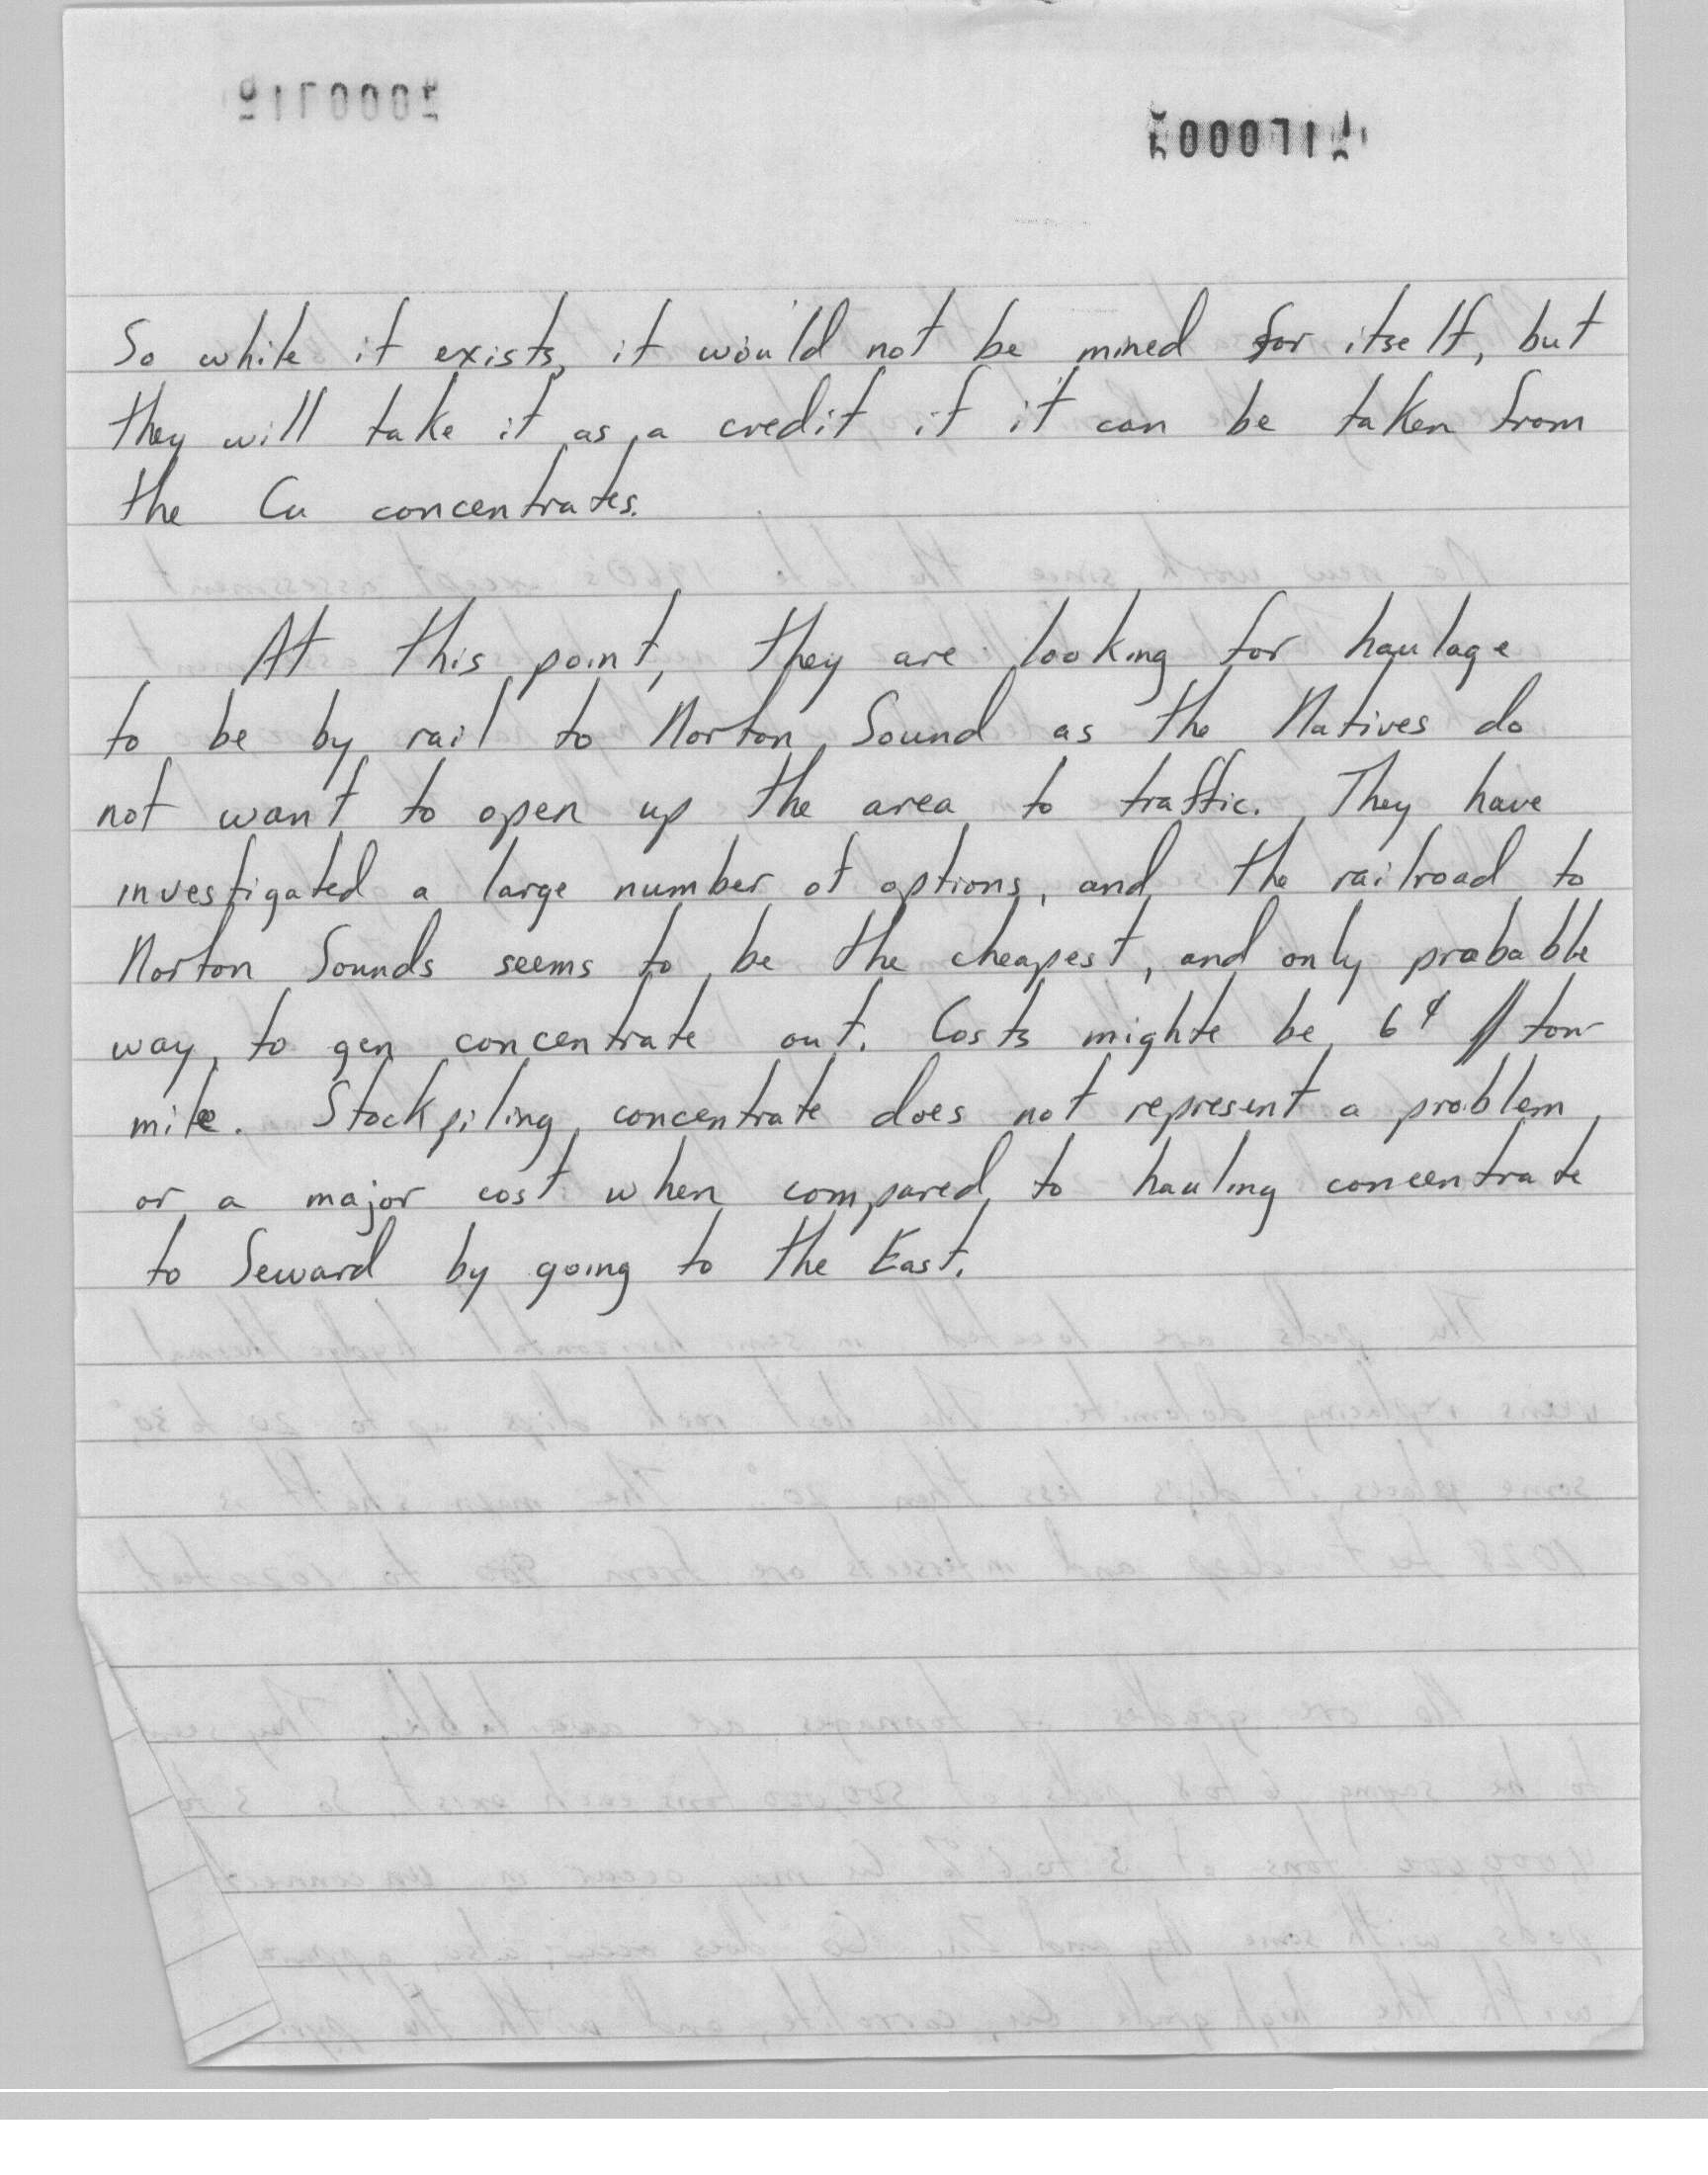 So while it exists, it would not be mined for itself, but
they will take it as a credit if it can be taken from
the Cu concentrates.
At this point, they are looking for haulage
to be by rail to Norton Sound as the Natives do
not want to open up the area to traffic. They have
investigated a large number of options, and the railroad to
Norton Sounds seems to be the cheapest, and only probable
way to gen concentrate out. Costs mighte be 6¢ / ton
mile. Stockpiling concentrate does not represent a problem
or a major cost when compared to hauling concentrate
to Seward by going to the East.